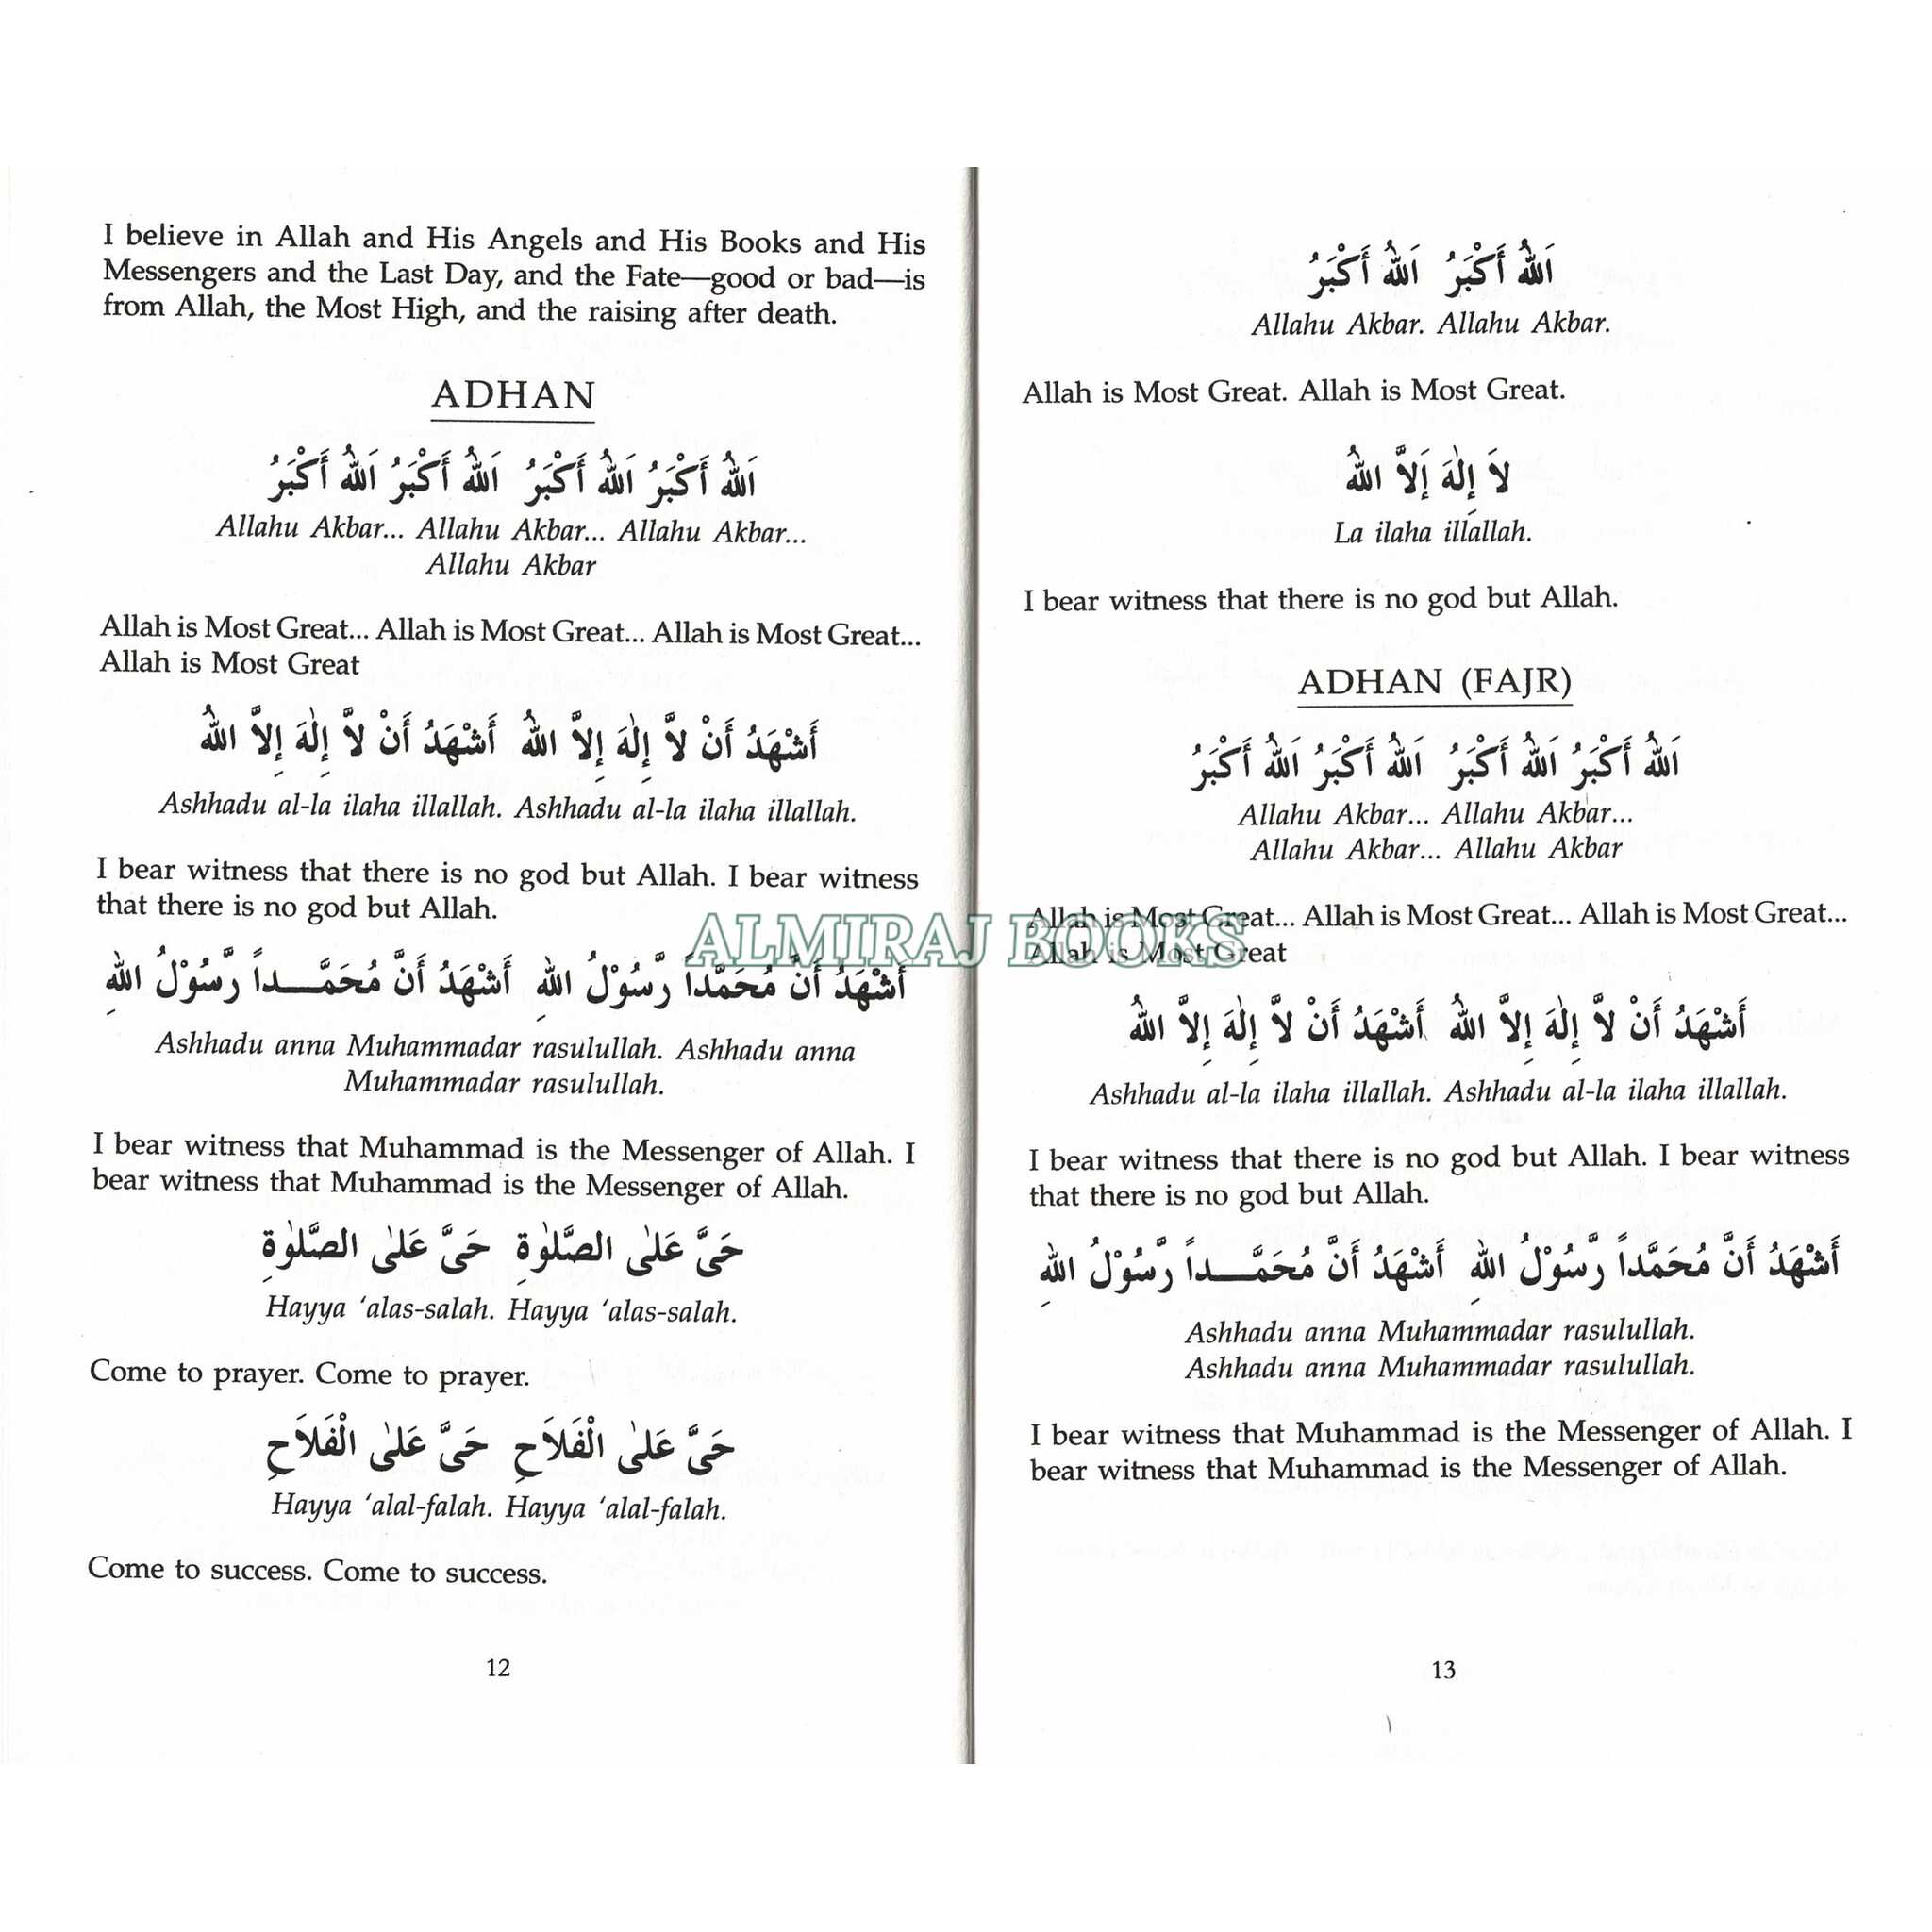 I believe in Allah and His Angels and His Books and His
Messengers and the Last Day, and the Fate—good or bad—is
from Allah, the Most High, and the raising after death.
ADHAN
اَللهُ أَكْبَرُ اَللهُ أَكْبَرُ اَللهُ أَكْبَرُ اَللهُ أَكْبَرُ
Allahu Akbar... Allahu Akbar... Allahu Akbar...
Allahu Akbar
Allah is Most Great... Allah is Most Great... Allah is Most Great...
Allah is Most Great
أَشْهَدُ أَنْ لاَّ إِلٰهَ إِلاَّ اللهُ أَشْهَدُ أَنْ لاَّ إِلٰهَ إِلاَّ اللهُ
Ashhadu al-la ilaha illallah. Ashhadu al-la ilaha illallah.
I bear witness that there is no god but Allah. I bear witness
that there is no god but Allah.
أَشْهَدُ أَنَّ مُحَمَّداً رَّسُوْلُ اللهِ أَشْهَدُ أَنَّ مُحَمَّـــداً رَّسُوْلُ اللهِ
Ashhadu anna Muhammadar rasulullah. Ashhadu anna
Muhammadar rasulullah.
I bear witness that Muhammad is the Messenger of Allah. I
bear witness that Muhammad is the Messenger of Allah.
حَىَّ عَلىٰ الصَّلوٰةِ حَىَّ عَلىٰ الصَّلوٰةِ
Hayya ‘alas-salah. Hayya ‘alas-salah.
Come to prayer. Come to prayer.
حَىَّ عَلىٰ الْفَلاَحِ حَىَّ عَلىٰ الْفَلاَحِ
Hayya ‘alal-falah. Hayya ‘alal-falah.
Come to success. Come to success.
12
اَللهُ أَكْبَرُ اَللهُ أَكْبَرُ
Allahu Akbar. Allahu Akbar.
Allah is Most Great. Allah is Most Great.
لاَ إِلٰهَ إَلاَّ اللهُ
La ilaha illallah.
I bear witness that there is no god but Allah.
ADHAN (FAJR)
اَللهُ أَكْبَرُ اَللهُ أَكْبَرُ اَللهُ أَكْبَرُ اَللهُ أَكْبَرُ
Allahu Akbar... Allahu Akbar...
Allahu Akbar... Allahu Akbar
Allah is Most Great... Allah is Most Great... Allah is Most Great...
Allah is Most Great
أَشْهَدُ أَنْ لاَّ إِلٰهَ إِلاَّ اللهُ أَشْهَدُ أَنْ لاَّ إِلٰهَ إِلاَّ اللهُ
Ashhadu al-la ilaha illallah. Ashhadu al-la ilaha illallah.
I bear witness that there is no god but Allah. I bear witness
that there is no god but Allah.
أَشْهَدُ أَنَّ مُحَمَّداً رَّسُوْلُ اللهِ أَشْهَدُ أَنَّ مُحَمَّـــداً رَّسُوْلُ اللهِ
Ashhadu anna Muhammadar rasulullah.
Ashhadu anna Muhammadar rasulullah.
I bear witness that Muhammad is the Messenger of Allah. I
bear witness that Muhammad is the Messenger of Allah.
13
ALMIRAJ BOOKS